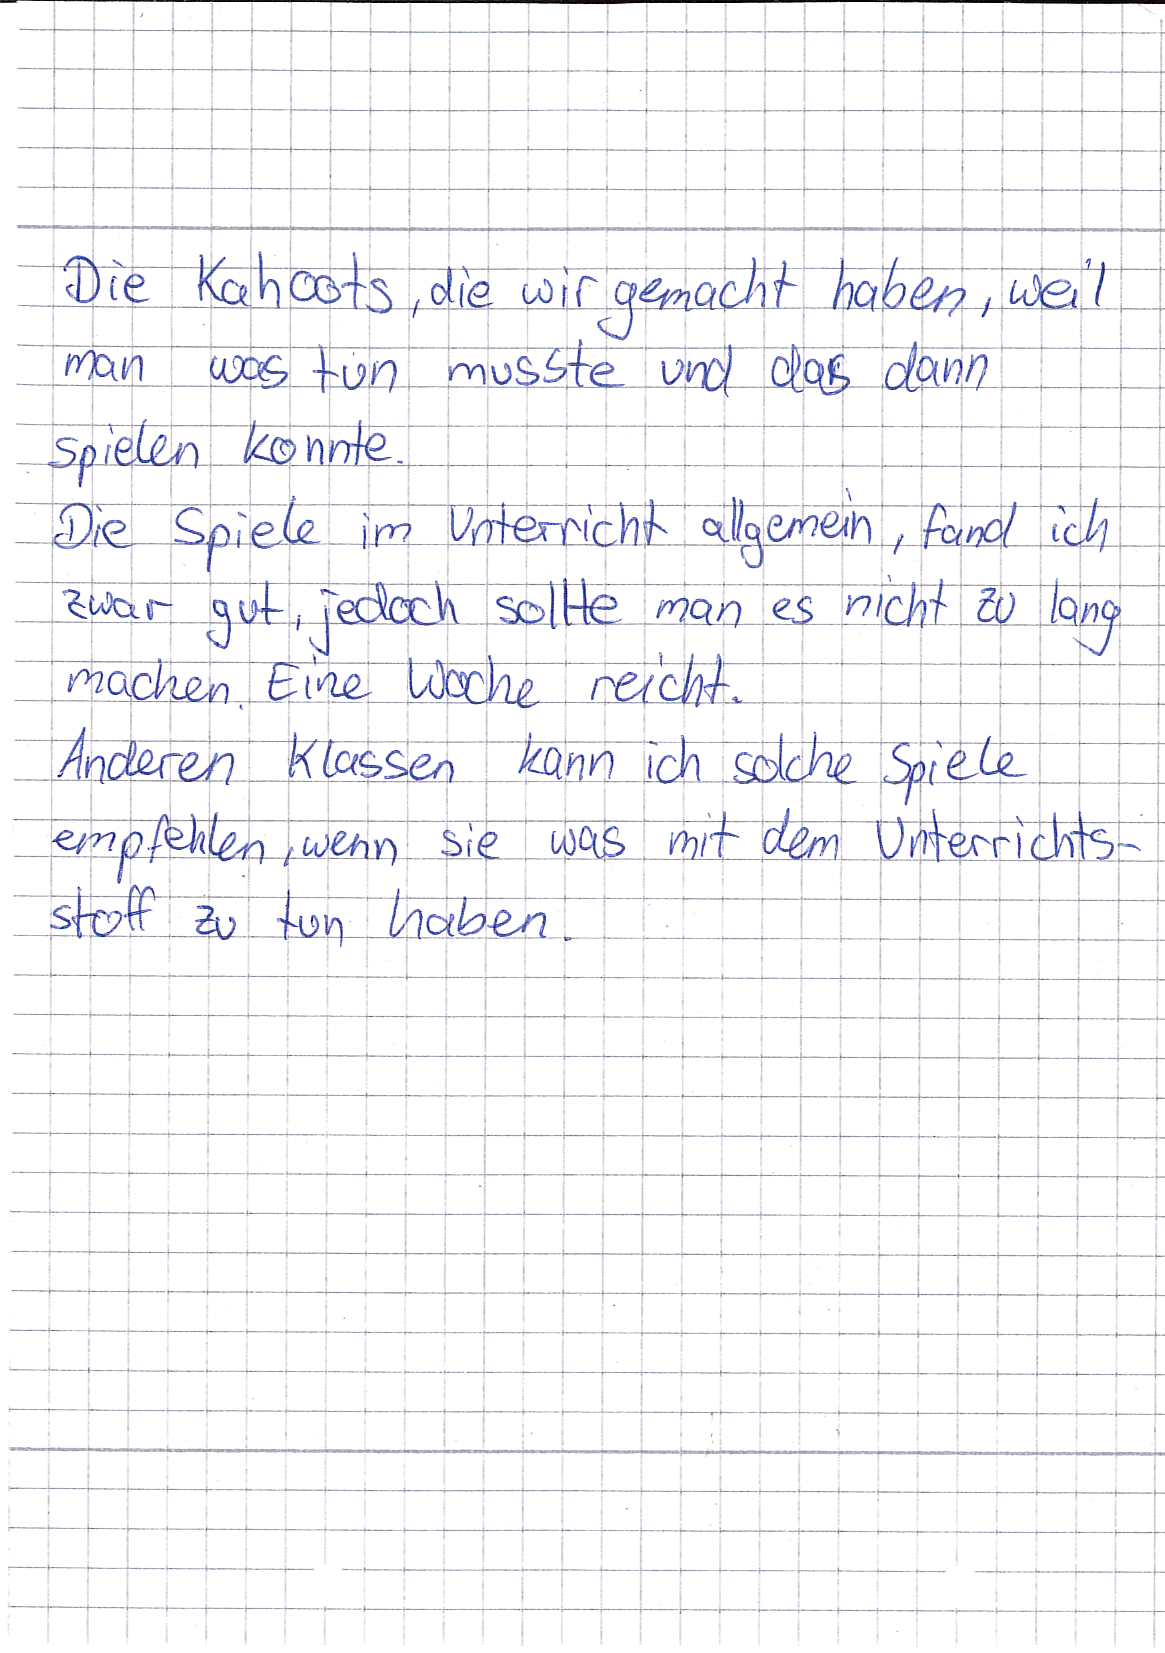 Die Kahoots, die wir gemacht haben, weil
man was tun musste und das dann
spielen konnte.
Die Spiele im Unterricht allgemein, fand ich
zwar gut, jedoch sollte man es nicht zu lang
machen. Eine Woche reicht.
Anderen Klassen kann ich solche Spiele
empfehlen, wenn sie was mit dem Unterrichts-
stoff zu tun haben.